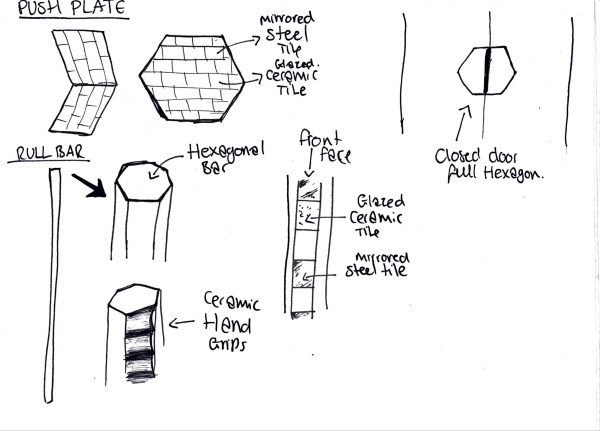 PUSH PLATE
Mirrored
Steel
Tile
Glazed.
Ceramic
Tile
Closed door
full Hexagon.
PULL BAR
Hexagonal
Bar
front
face
Glazed
Ceramic
Tile
Mirrored
Steel tile
Ceramic
Hand
Grips